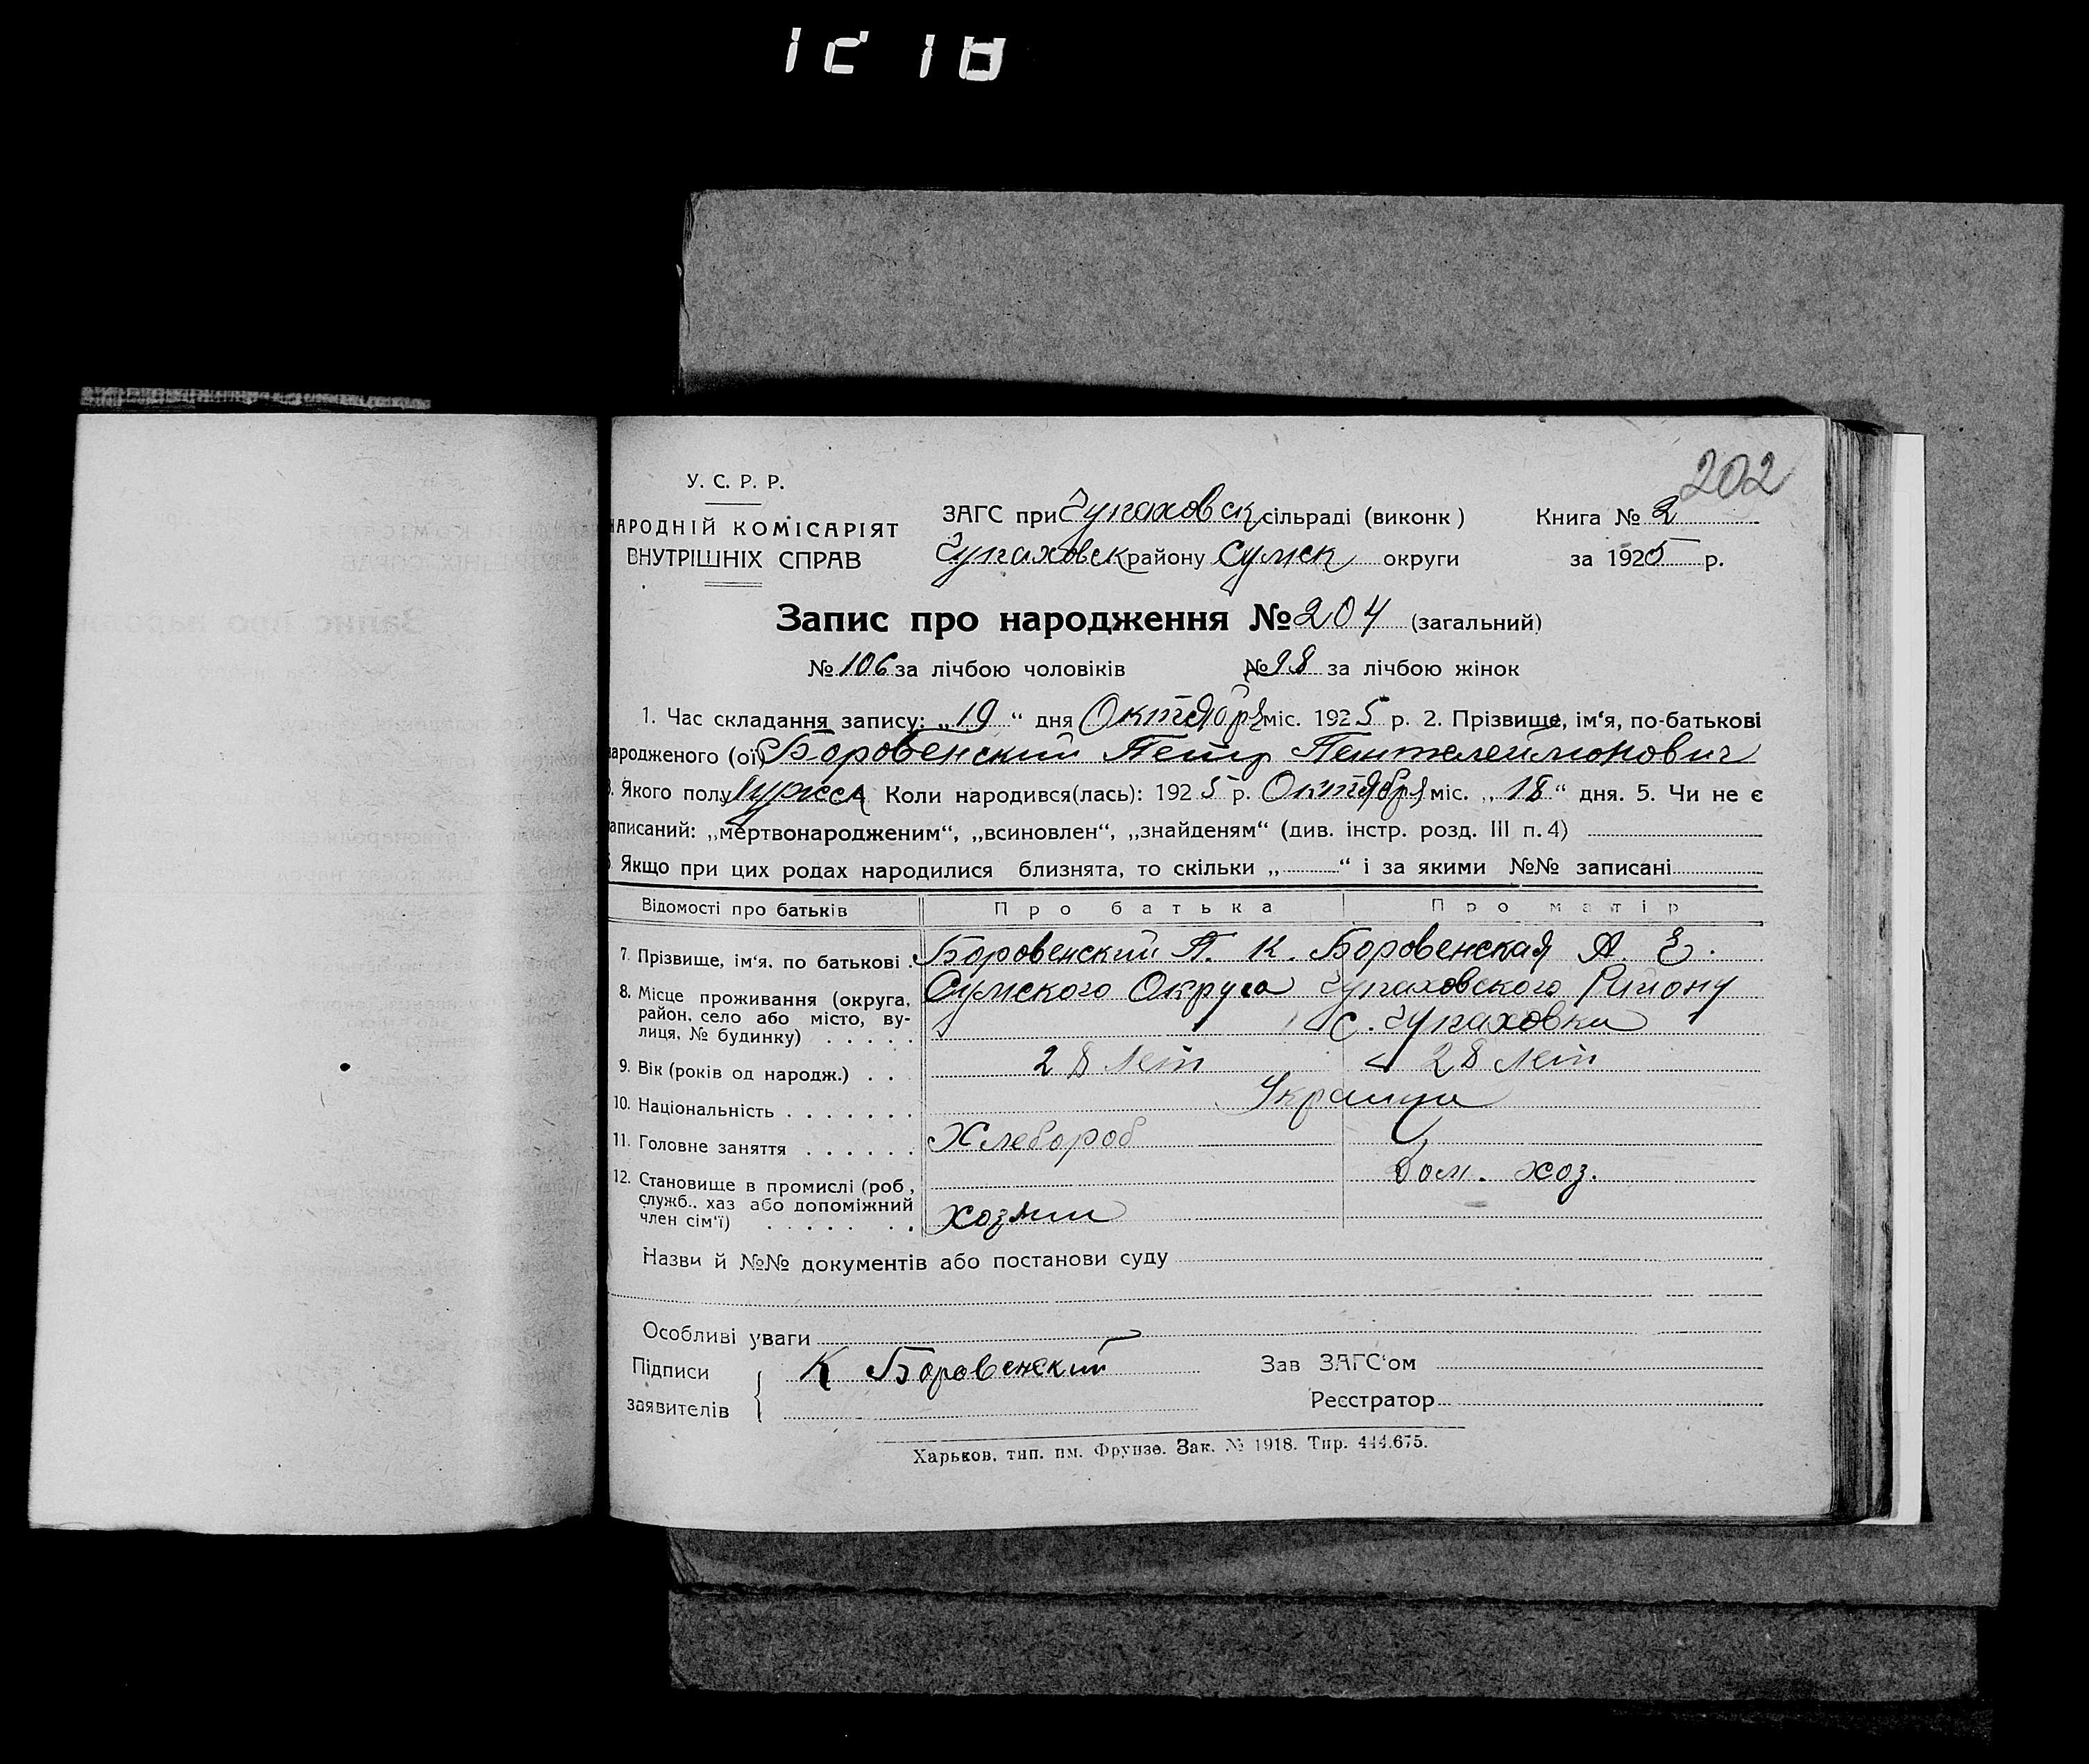 1218
202
У. С. Р. Р.
НАРОДНІЙ КОМІСАРІЯТ
ВНУТРІШНІХ СПРАВ
ЗАГС при Чупаховск сільраді (виконк)
Чупаховск району Сумск округи
Книга № 2
за 1925 р.
Запис про народження № 204 (загальний)
№ 106 за лічбою чоловіків № 98 за лічбою жінок
1. Час складання запису: „19“ дня Октября міс. 1925 р. 2. Прізвище, ім‘я, по-батькові
народженого (ої) Боровенский Петр Пантелеймонович
3. Якого полу мужск Коли народився(лась): 1925 р. Октября міс. „18“ дня. 5. Чи не є
записаний: „мертвонародженим“, „всиновлен“, „знайденям“ (див. інстр. розд. III п. 4)
6. Якщо при цих родах народилися близнята, то скільки „ “ і за якими №№ записані
Відомості про батьків Про батька Про матір
7. Прізвище, ім‘я, по батькові . Боровенский П. К. Боровенская А. Е.
8. Місце проживання (округа, район, село або місто, ву-
лиця, № будинку) . . . . . Сумского Округа Чупаховского Району
с. Чупаховки
9. Вік (років од народж.) . . . 28 лет 28 лет
10. Національність . . . . . . . Украинци
11. Головне заняття . . . . . . Хлебороб
Дом. хоз.
12. Становище в промислі (роб., служб., хаз або допоміжний
член сім‘ї) . . . . . . . Хозяин
Назви й №№ документів або постанови суду
Особливі уваги
Підписи
заявителів
К Боровенский
Зав ЗАГС‘ом
Реєстратор
Харьков, тип. им. Фрунзе. Зак. № 1918. Тир. 444.675.